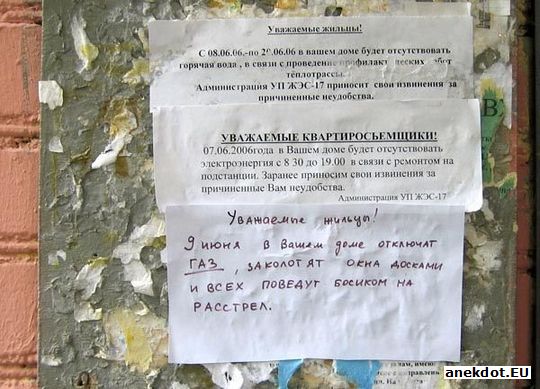 Уважаемые жильцы!
С 08.06.06.-по 20.06.06 в вашем доме будет отсутствовать
горячая вода , в связи с проведение
теплотрассы.
Администрация УП ЖЭС-17 приносит свои извинения за
причиненные неудобства.
УВАЖАЕМЫЕ КВАРТИРОСЬЕМЩИКИ!
07.06.2006года в Вашем доме будет отсутствовать
электроэнергия с 8 30 до 19.00 в связи с ремонтом на
подстанции. Заранее приносим свои извинения за
причиненные Вам неудобства.
Администрация УП ЖЭС-17
В
Уважаемые жильцы!
9 июня в Вашем доме отключат
ГАЗ , заколотят окна досками
и всех поведут босиком на
РАССТРЕЛ.
anekdot.EU